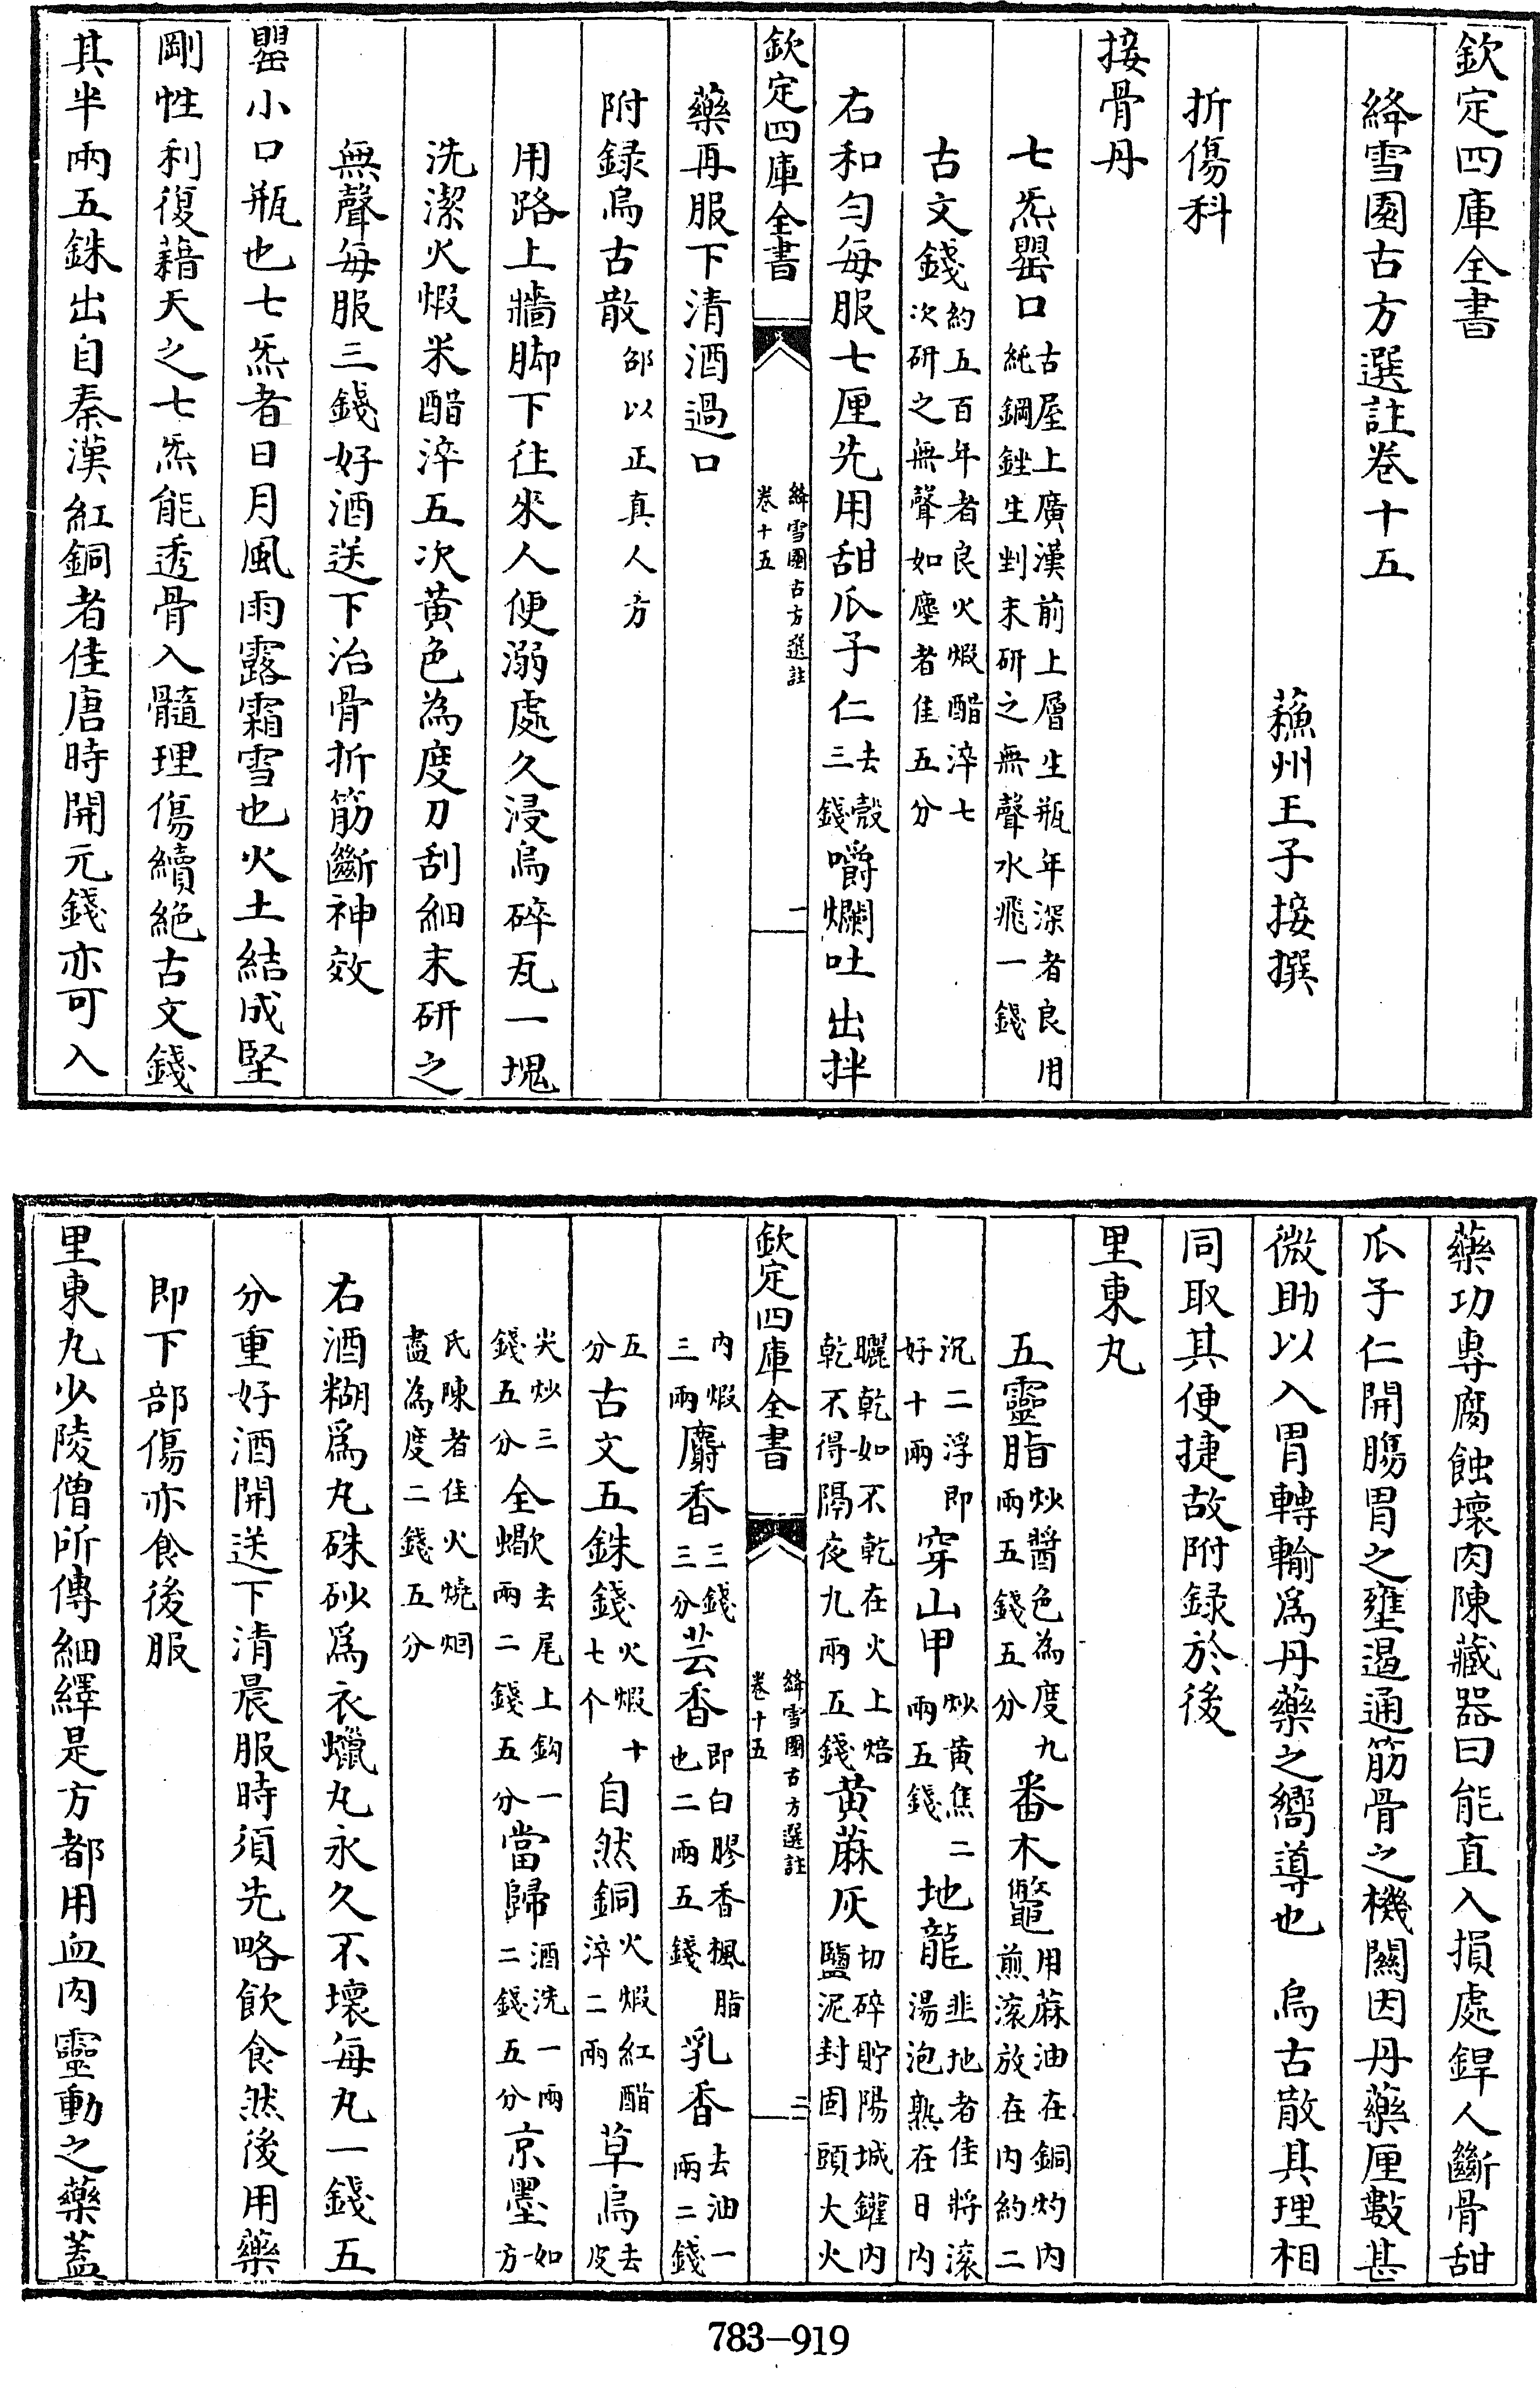 欽定四庫全書
絳雪園古方選註卷十五
蘓州王子接撰
折傷科
接骨丹
七炁罌口古屋上廣漢前上層生瓶年深者良用純鋼銼生剉末研之無聲水飛一錢
古文錢約五百年者良火煅醋淬七次研之無聲如塵者佳五分
右和勻每服七厘先用甜瓜子仁去殻三錢嚼爛吐出拌
欽定四庫全書 絳雪園古方選註卷十五 一
藥再服下清酒過口
附録烏古散邵以正真人方
用路上牆脚下往來人便溺處久浸烏碎瓦一塊
洗潔火煅米醋淬五次黃色為度刀刮細末研之
無聲每服三錢好酒送下治骨折筋斷神效
罌小口瓶也七炁者日月風雨露霜雪也火土結成堅
剛性利復藉天之七炁能透骨入髓理傷續絶古文錢
其半兩五銖出自秦漢紅銅者佳唐時開元錢亦可入
藥功專腐蝕壞肉陳藏器曰能直入損處銲人斷骨甜
瓜子仁開膓胃之壅遏通筋骨之機關因丹藥厘數甚
微助以入胃轉輸爲丹藥之嚮導也 烏古散其理相
同取其便捷故附録於後
里東丸
五靈脂炒醬色為度九兩五錢五分番木鼈用蔴油在銅灼内煎滚放在内約二
沉二浮即好十兩穿山甲炒黄焦二兩五錢地龍韭地者佳將滚湯泡熟在日内
曬乾如不乾在火上焙乾不得隔夜九兩五錢黄蔴灰切碎貯陽城鑵内鹽泥封固頭大火
欽定四庫全書 絳雪園古方選註卷十五 二
内煅三兩麝香三錢三分芸香即白膠香楓脂也二兩五錢乳香去油一兩二錢
五分古文五銖錢火煅十七个自然銅火煅紅醋淬二兩草烏去皮
尖炒三錢五分全蠍去尾上鈎一兩二錢五分當歸酒洗一兩二錢五分京墨如一方
氏陳者佳火燒烟盡為度二錢五分
右酒糊爲丸硃砂爲衣蠟丸永久不壞每丸一錢五
分重好酒開送下清晨服時須先略飲食然後用藥
即下部傷亦食後服
里東丸少陵僧所傳細繹是方都用血肉靈動之藥蓋
783-919